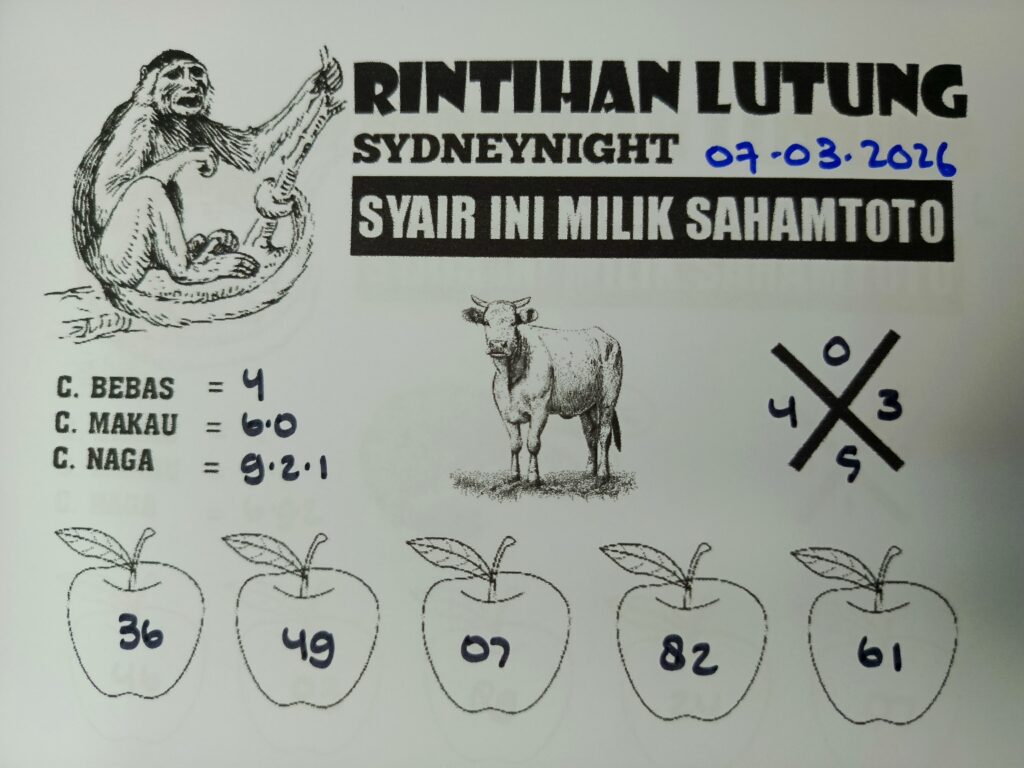 RINTIHAN LUTUNG
SYDNEYNIGHT 07-03-2026
SYAIR INI MILIK SAHAMTOTO
C. BEBAS = 4
C. MAKAU = 6.0
C. NAGA = 9.2.1
0
4 3
5
36 49 07 82 61